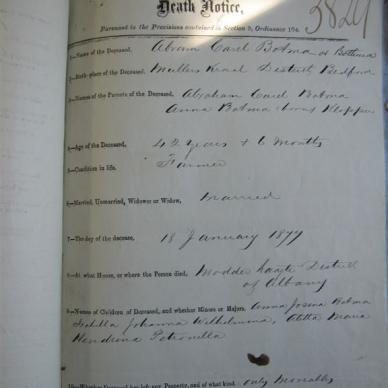 Death Notice,
Pursuant to the Provisions contained in Section 9, Ordinance 104.
1—Name of the Deceased, Abram Carel Botma or Bothma
2—Birth-place of the Deceased, Mullers Kraal District Bedford
3—Names of the Parents of the Deceased, Abraham Carel Botma
Anna Botma born Klopper
4—Age of the Deceased, 42 Years + 6 Months
5—Condition in life, Farmer
6—Married, Unmarried, Widower or Widow, Married
7—The day of the decease, 18 January 1877
8—At what House, or where the Person died, District
of Albany
9—Names of Children of Deceased, and whether Minors or Majors, Anna Botma
Johanna Wilhelmina, Maria
Hendrina Petronella
10—Whether Deceased has left any Property, and of what kind. only